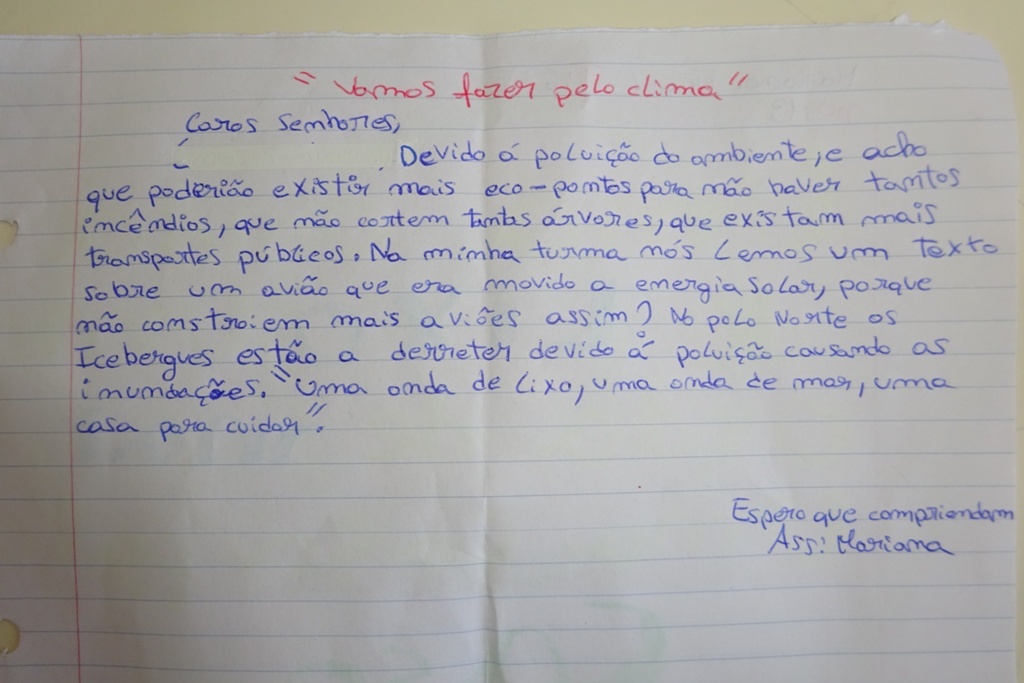 "Vamos fazer pelo clima"
Caros Senhores,
Devido á poluição do ambiente, e acho
que poderião existir mais eco-pontos para não haver tantos
incêndios, que não cortem tantas árvores, que existam mais
transportes públicos. Na minha turma nós Lemos um texto
sobre um avião que era movido a energia Solar, porque
não constroiem mais aviões assim? No polo Norte os
Icebergues estão a derreter devido á poluição causando as
inundações. "Uma onda de lixo, uma onda de mar, uma
casa para cuidar".
Espero que compriendam
Ass: Mariana